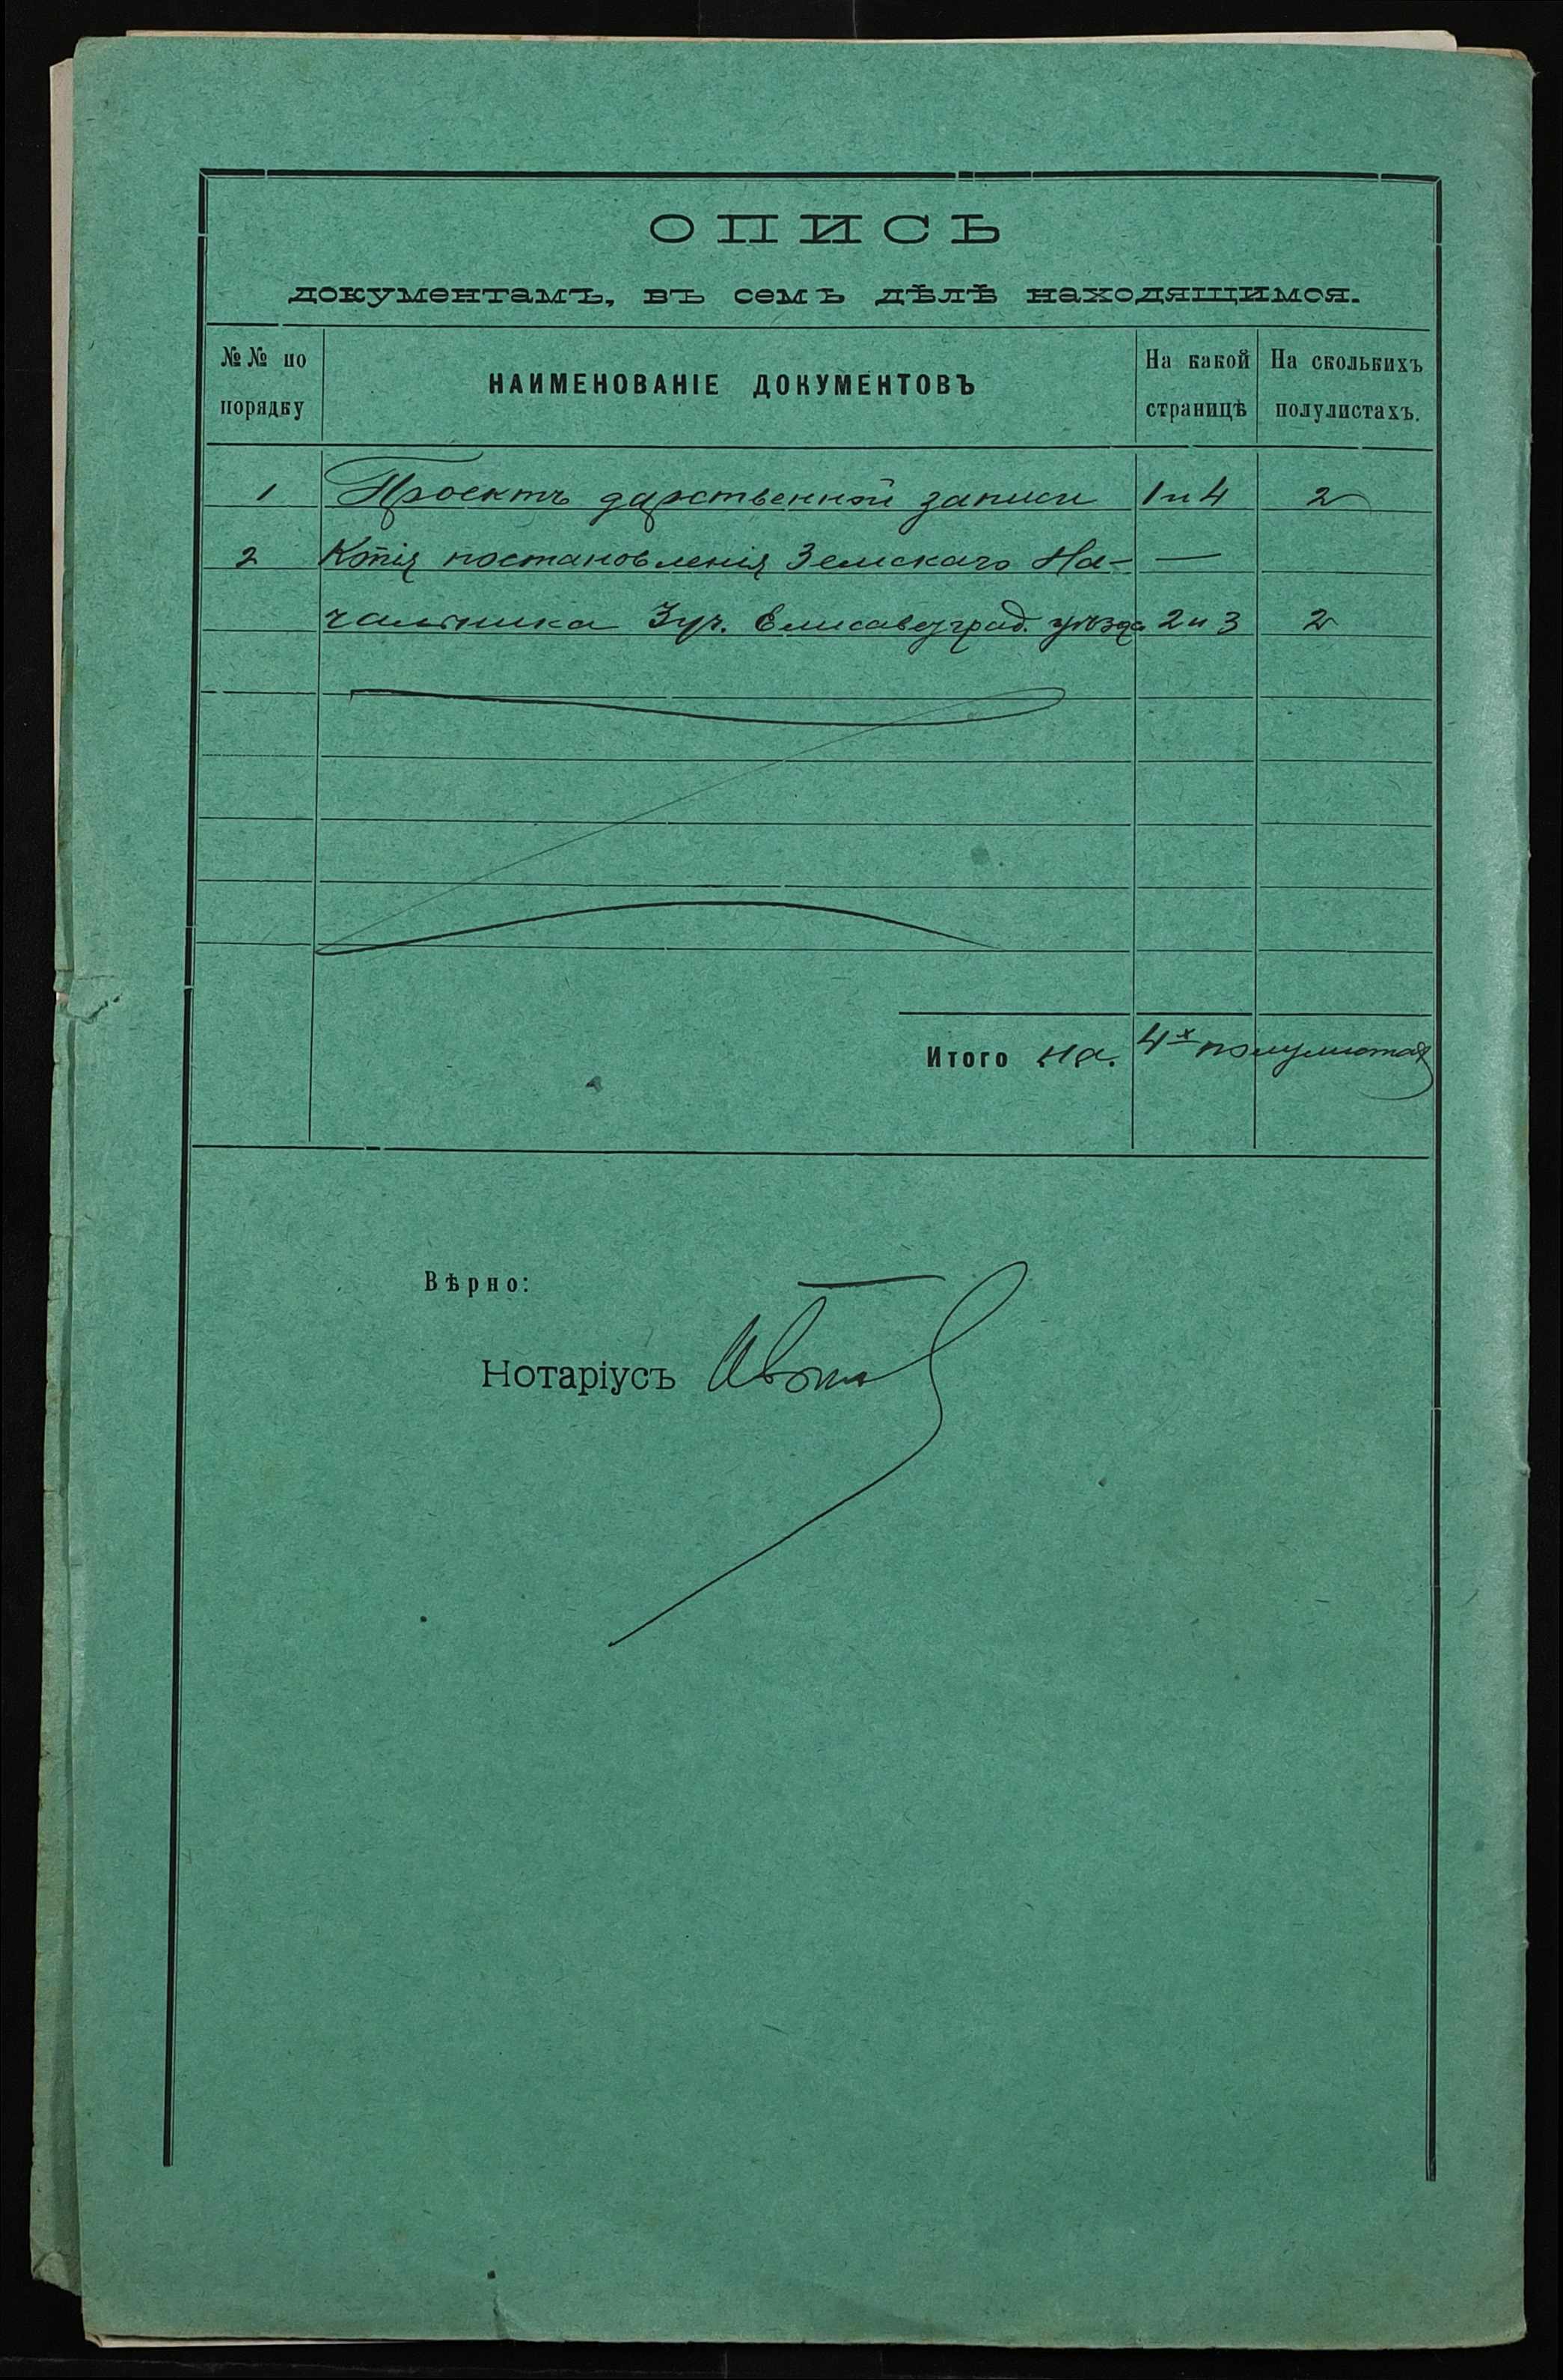 ОПИСЬ
документамъ, въ семъ дѣлѣ находящимся.
№№ по порядку
НАИМЕНОВАНІЕ ДОКУМЕНТОВЪ
На какой страницѣ
На сколькихъ полулистахъ.
1 Проектъ дарственной записи 1 и 4 2
2 Копія постановленія Земскаго На- —
чальника 3 уч. Елисаветград. уѣзда 2 и 3 2
Итого на 4х полулистах
Вѣрно:
Нотаріусъ